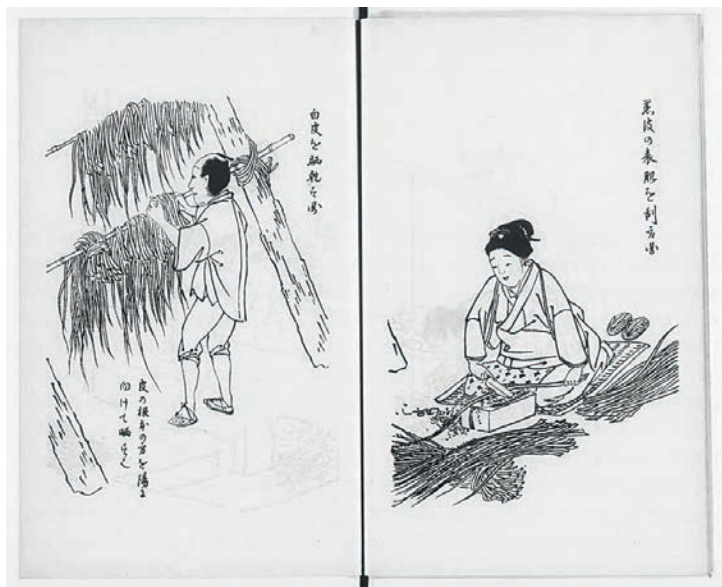 黒皮の表肌を削る図
白皮を晒乾す図
皮の根本の方を陽に
向けて晒すべし